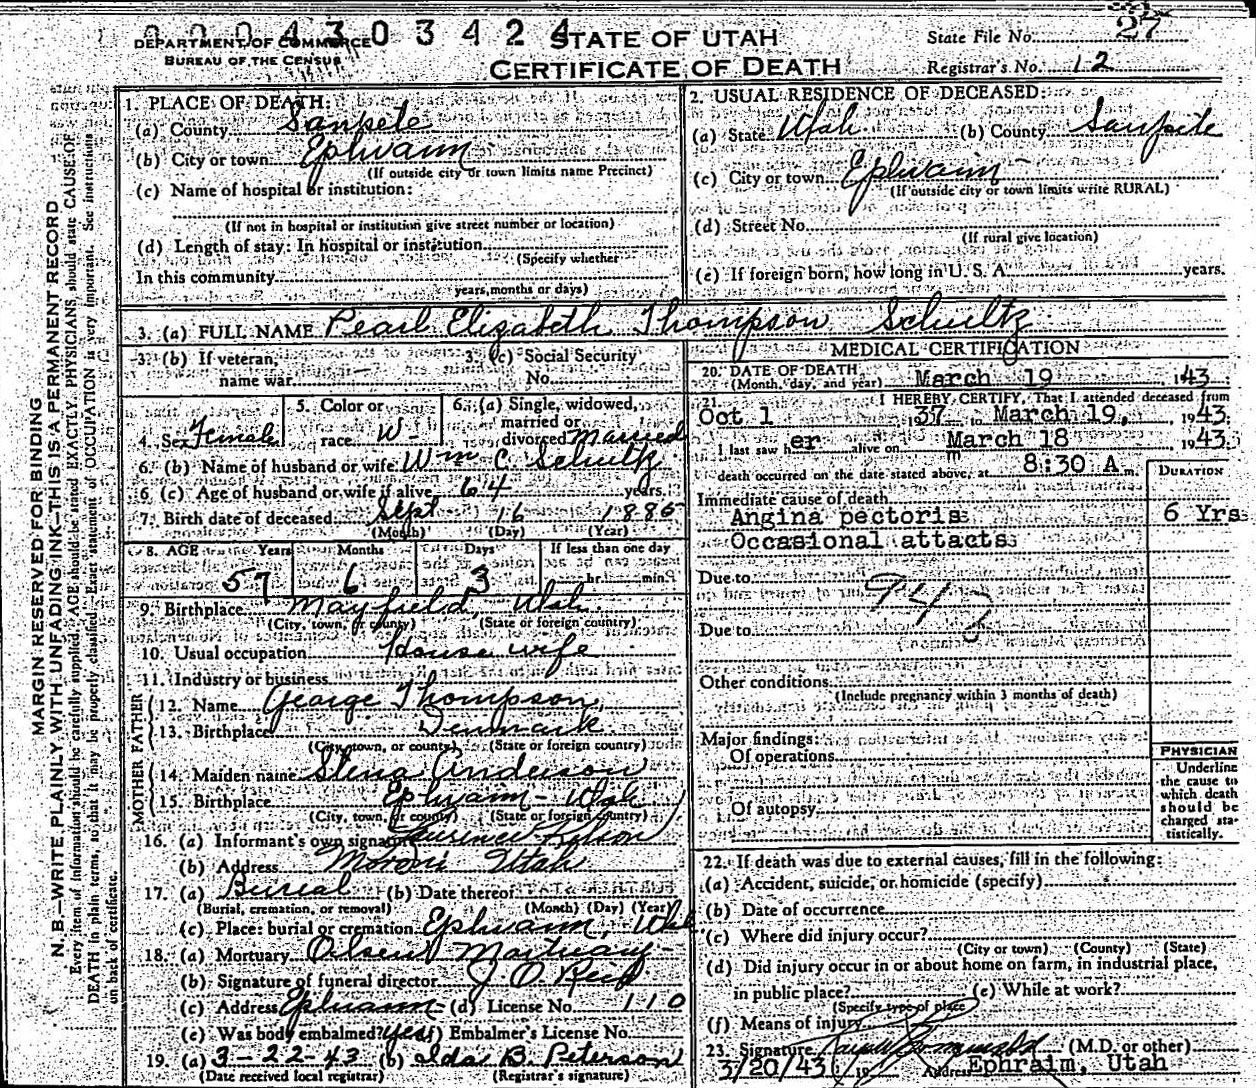 0 0 0 4 3 0 3 4 2 4
DEPARTMENT OF COMMERCE
BUREAU OF THE CENSUS
STATE OF UTAH
CERTIFICATE OF DEATH
State File No. 27
Registrar's No. 12
MARGIN RESERVED FOR BINDING
N. B.—WRITE PLAINLY WITH UNFADING INK—THIS IS A PERMANENT RECORD
Every item of information should be carefully supplied. AGE should be stated EXACTLY. PHYSICIANS should state CAUSE OF
DEATH in plain terms, so that it may be properly classified. Exact statement of OCCUPATION is very important. See instructions
on back of certificate.
1. PLACE OF DEATH:
(a) County Sanpete
(b) City or town Ephraim
(If outside city or town limits name Precinct)
(c) Name of hospital or institution:
(If not in hospital or institution give street number or location)
(d) Length of stay: In hospital or institution
(Specify whether
In this community
years, months or days)
2. USUAL RESIDENCE OF DECEASED:
(a) State Utah (b) County Sanpete
(c) City or town Ephraim
(If outside city or town limits write RURAL)
(d) Street No.
(If rural give location)
(e) If foreign born, how long in U. S. A. years.
3. (a) FULL NAME Pearl Elizabeth Thompson Schultz
3. (b) If veteran, name war
3. (c) Social Security No.
4. Sex Female
5. Color or race W-
6. (a) Single, widowed, married or divorced Married
6. (b) Name of husband or wife Wm C Schultz
6. (c) Age of husband or wife if alive 64 years.
7. Birth date of deceased Sept 16 1885
(Month) (Day) (Year)
8. AGE Years Months Days If less than one day
57 6 3 hr. min.
9. Birthplace Mayfield, Utah
(City, town, or county) (State or foreign country)
10. Usual occupation House wife
11. Industry or business
FATHER
12. Name George Thompson
13. Birthplace Denmark
(City, town, or county) (State or foreign country)
MOTHER
14. Maiden name Stena Anderson
15. Birthplace Ephraim - Utah
(City, town, or county) (State or foreign country)
16. (a) Informant's own signature
(b) Address Moroni Utah
17. (a) Burial (b) Date thereof
(Burial, cremation, or removal) (Month) (Day) (Year)
(c) Place: burial or cremation Ephraim, Utah
18. (a) Mortuary Olsen Mortuary
(b) Signature of funeral director J. O.
(c) Address Ephraim (d) License No. 110
(e) Was body embalmed? yes (f) Embalmer's License No.
19. (a) 3-22-43 (b) Ilda B. Peterson
(Date received local registrar) (Registrar's signature)
MEDICAL CERTIFICATION
20. DATE OF DEATH
(Month, day, and year) March 19, 143
21. I HEREBY CERTIFY, That I attended deceased from
Oct 1 37 to March 19, 1943
I last saw her alive on March 18 1943
death occurred on the date stated above, at 8:30 A m.
DURATION
Immediate cause of death
Angina pectoris 6 Yrs
Occasional attacts
Due to
94
Due to
Other conditions
(Include pregnancy within 3 months of death)
Major findings:
Of operations
Of autopsy
PHYSICIAN
Underline
the cause to
which death
should be
charged sta-
tistically.
22. If death was due to external causes, fill in the following:
(a) Accident, suicide, or homicide (specify)
(b) Date of occurrence
(c) Where did injury occur?
(City or town) (County) (State)
(d) Did injury occur in or about home on farm, in industrial place,
in public place? (e) While at work?
(Specify type of place)
(f) Means of injury
23. Signature (M.D. or other)
3/20/43 19 Address Ephraim, Utah